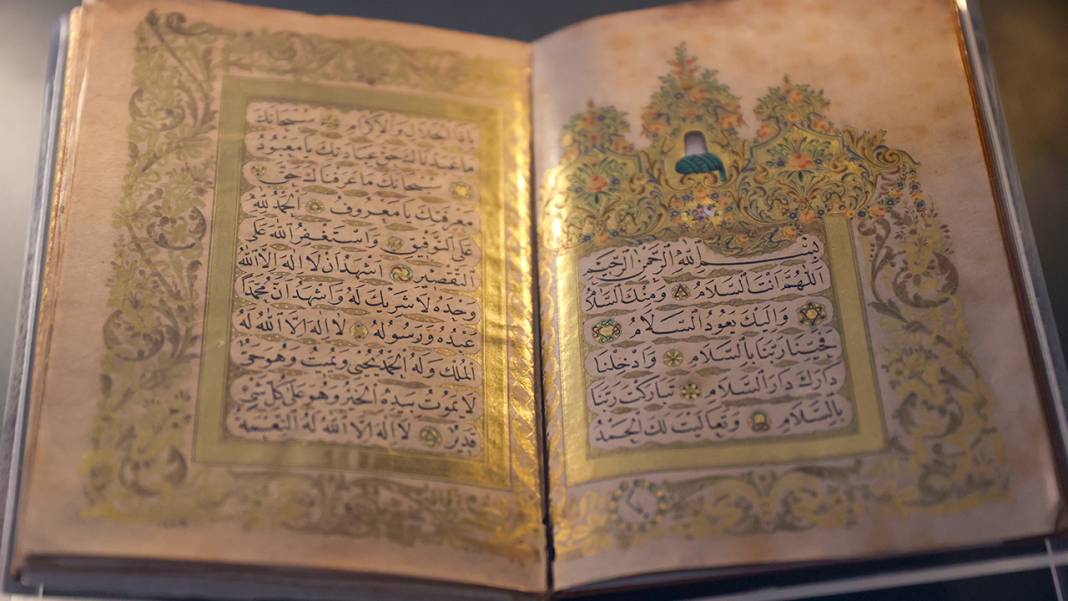 بِسْمِ اللهِ الرَّحْمٰنِ الرَّحِيمِ
اَللّٰهُمَّ اَنْتَ السَّلَامُ وَمِنْكَ السَّلَا
وَاِلَيْكَ يَعُودُ السَّلَامُ
فَحَيِّنَا رَبَّنَا بِالسَّلَامِ وَاَدْخِلْنَا
دَارَكَ دَارَ السَّلَامِ تَبَارَكْتَ رَبَّنَا
بِالسَّلَامِ وَتَعَالَيْتَ لَكَ الْحَمْدُ
يَاذَا الْجَلَالِ وَالْاِكْرَامِ سُبْحَانَكَ
مَا عَبَدْنَاكَ حَقَّ عِبَادَتِكَ يَا مَعْبُودُ
سُبْحَانَكَ مَا عَرَفْنَاكَ حَقَّ
مَعْرِفَتِكَ يَا مَعْرُوفُ اَلْحَمْدُ لِلّٰهِ
عَلَى التَّوْفِيقِ وَاَسْتَغْفِرُ اللهَ عَلَى
التَّقْصِيرِ اَشْهَدُ اَنْ لَا اِلٰهَ اِلَّا اللهُ
وَحْدَهُ لَا شَرِيكَ لَهُ وَاَشْهَدُ اَنَّ مُحَمَّدًا
عَبْدُهُ وَرَسُولُهُ لَا اِلٰهَ اِلَّا اللهُ لَهُ
الْمُلْكُ وَلَهُ الْحَمْدُ يُحْيِى وَيُمِيتُ وَهُوَ حَىٌّ
لَا يَمُوتُ بِيَدِهِ الْخَيْرُ وَهُوَ عَلَى كُلِّ شَىْءٍ
قَدِيرٌ لَا اِلٰهَ اِلَّا اللهُ لَهُ النِّعْمَةُ